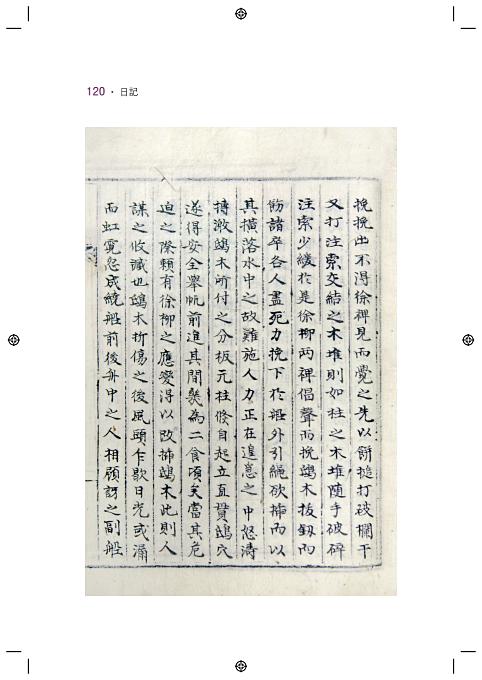 120 · 日記
挽挽出不得徐裨見而覺之先以餠搥打破欄干
又打注索交結之木堆則如柱之木堆隨手破碎
注索少緩於是徐柳两裨倡聲而挽鴟木拔釼而
飭諸卒各人盡死力挽下於船外引繩欲揷而以
其橫落水中之故難施人力正在遑悤之中怒濤
搏激鴟木所付之分板元柱倏自起立直貫鴟穴
遂得安全擧帆前進其間幾為二食頃矣當其危
迫之際賴有徐柳之應變得以改揷鴟木此則人
謀之收議也鴟木折傷之後風頭乍歇日光或漏
而虹霓忽成繞船前後舟中之人相顧訝之副船